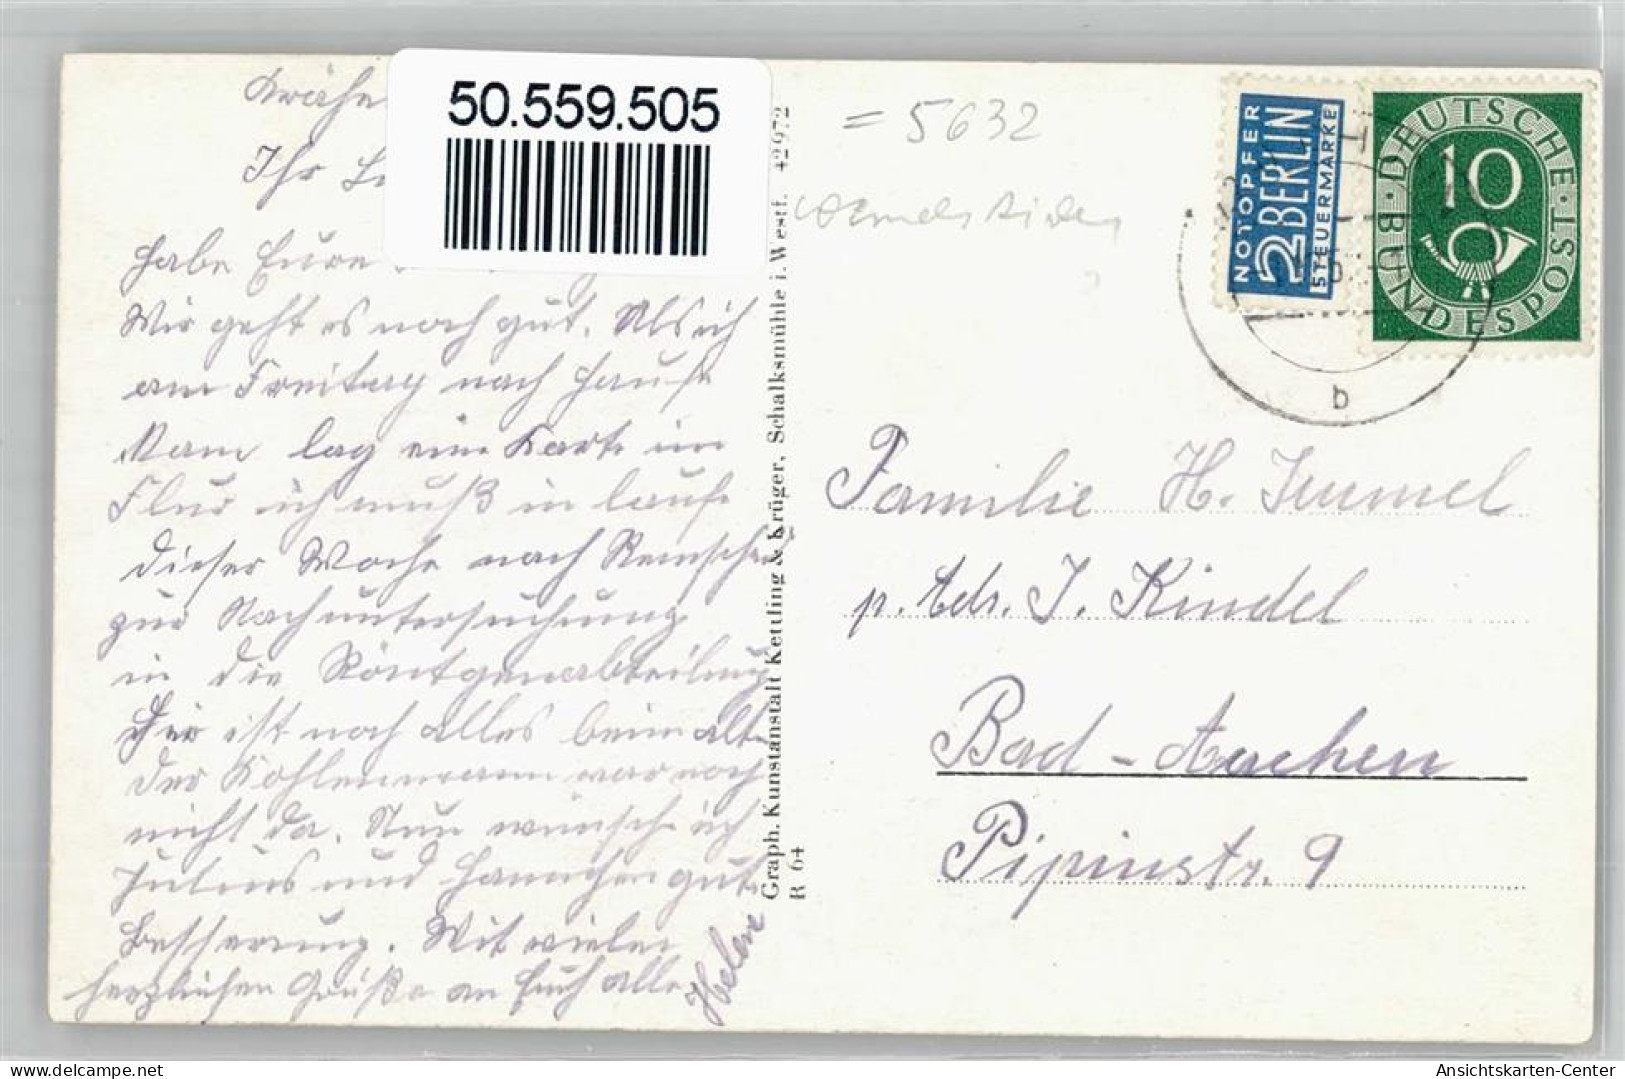 50.559.505
Krähe
Ihr
habe Eure
Mir geht es noch gut. Als ich
am Freitag nach Hause
kam lag eine Karte im
Flur ich muß in laufe
dieser Woche nach Remscheid
zur Nachuntersuchung
in die Röntgenabteilung
Hier ist noch alles beim alten
der Kohlenmann war noch
nicht da. Nun wünsche ich
Julius und Hannchen gute
Besserung. Mit vielen
herzlichen Grüße an Euch alle
Helene
Graph. Kunstanstalt Kettling & Krüger, Schalksmühle i. Westf. 42972
R 64
= 5632
NOTOPFER
2 BERLIN
STEUERMARKE
DEUTSCHE BUNDESPOST
10
b
Familie H. Immel
p. Adr. J. Kindel
Bad-Aachen
Pipinstr. 9
oldthing.de
Ansichtskarten-Center